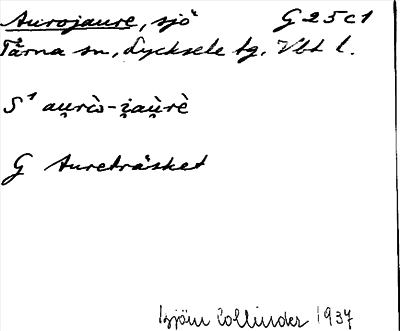 Aurojaure, sjö G 25 c 1
Tärna sn, Lycksele tg. Vbt l.
S¹ au̯ri̯ò-i̯au̯rè
G Aureträsket
Björn Collinder 1937